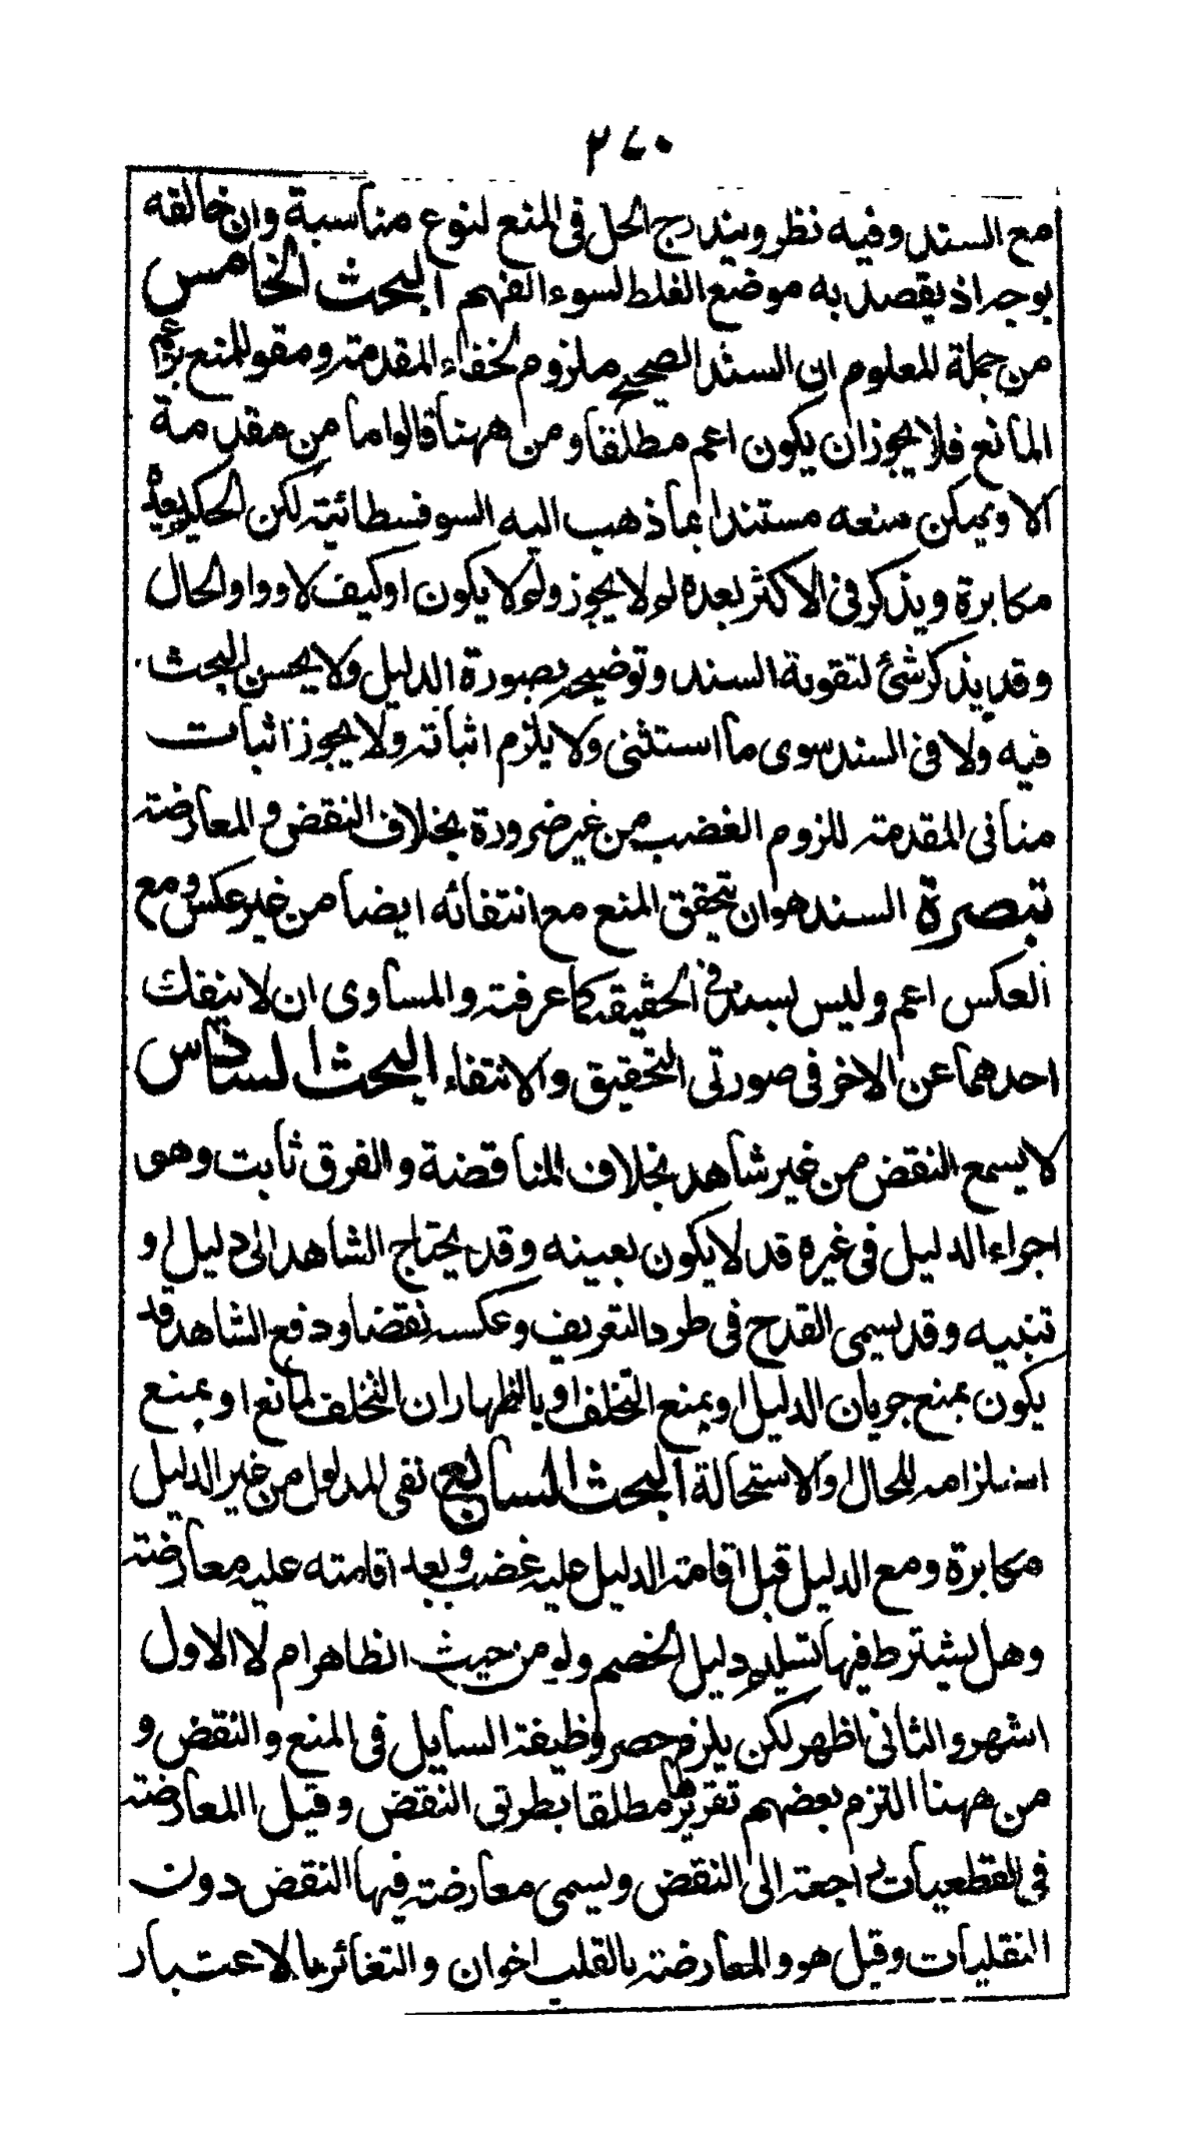 ٢٧٠
مع السند وفيه نظر ويندرج الحل فى المنع لنوع مناسبة وان خالفه
بوجه اذ يقصد به موضع الغلط لسوء الفهم البحث الخامس
من جملة المعلوم ان السند الصحيح ملزوم لخفاء المقدمة ومقو للمنع بزعم
المانع فلا يجوز ان يكون اعم مطلقا ومن ههنا قالوا ما من مقدمة
الا ويمكن منعه مستندا بما ذهب اليه السوفسطائية لكن الحكيم يعده
مكابرة ويذكر فى الاكثر بعده لم لا يجوز ولم لا يكون او كيف لا وواو الحال
وقد يذكر شئ لتقوية السند وتوضيحه بصورة الدليل ولا يحسن البحث
فيه ولا فى السند سوى ما استثنى ولا يلزم اثباته ولا يجوز اثبات
منافى المقدمة للزوم الغضب من غير ضرورة بخلاف النقض والمعارضة
تبصرة السند هو ان يتحقق المنع مع انتفائه ايضا من غير عكس ومع
العكس اعم وليس بسند فى الحقيقة كما عرفت والمساوى ان لا ينفك
احدهما عن الاخر فى صورتى التحقيق والانتفاء البحث السادس
لا يسمع النقض من غير شاهد بخلاف المناقضة والفرق ثابت وهو
اجراء الدليل فى غيره قد لا يكون بعينه وقد يحتاج الشاهد الى دليل او
تنبيه وقد يسمى القدح فى طرد التعريف وعكسه نقضا ودفع الشاهد قد
يكون بمنع جريان الدليل او بمنع التخلف او باظهار ان التخلف لمانع او بمنع
استلزامه للمحال او الاستحالة البحث السابع نفى المدلول من غير الدليل
مكابرة ومع الدليل قبل اقامة الدليل عليه غضب وبعد اقامته عليه معارضة
وهل يشترط فيها تسليم دليل الخصم ولو من حيث الظاهر ام لا الاول
اشهر والثانى اظهر لكن يلزم حصر وظيفة السايل فى المنع والنقض و
من ههنا التزم بعضهم تقريرها مطلقا بطريق النقض وقيل المعارضة
فى القطعيات راجعة الى النقض ويسمى معارضة فيها النقض دون
النقليات وقيل هو والمعارضة بالقلب اخوان والتغائر بالاعتبار